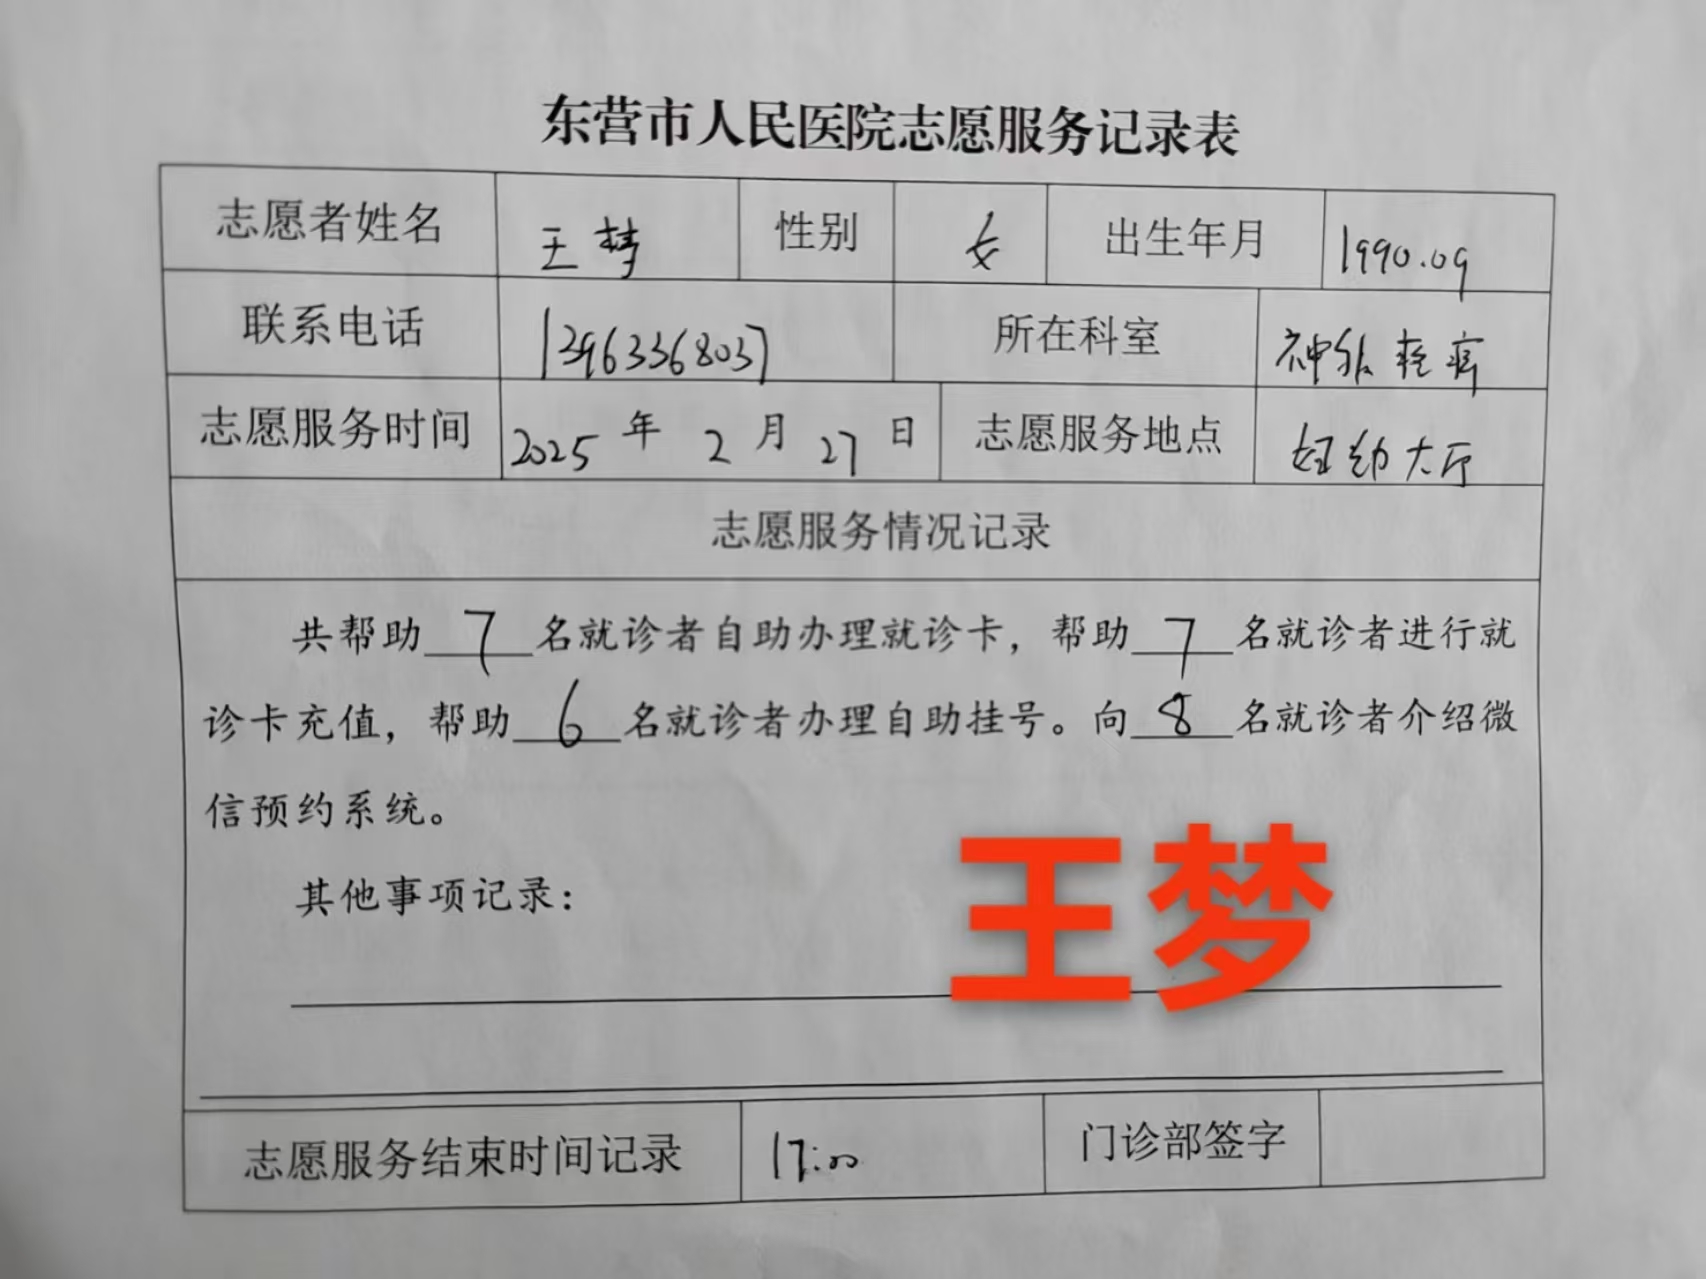 东营市人民医院志愿服务记录表
志愿者姓名 王梦 性别 女 出生年月 1990.09
联系电话 13963368037 所在科室 神外疼痛
志愿服务时间 2025 年 2 月 27 日 志愿服务地点 妇幼大厅
志愿服务情况记录
共帮助 7 名就诊者自助办理就诊卡，帮助 7 名就诊者进行就
诊卡充值，帮助 6 名就诊者办理自助挂号。向 8 名就诊者介绍微
信预约系统。
其他事项记录：
王梦
志愿服务结束时间记录 17:00 门诊部签字